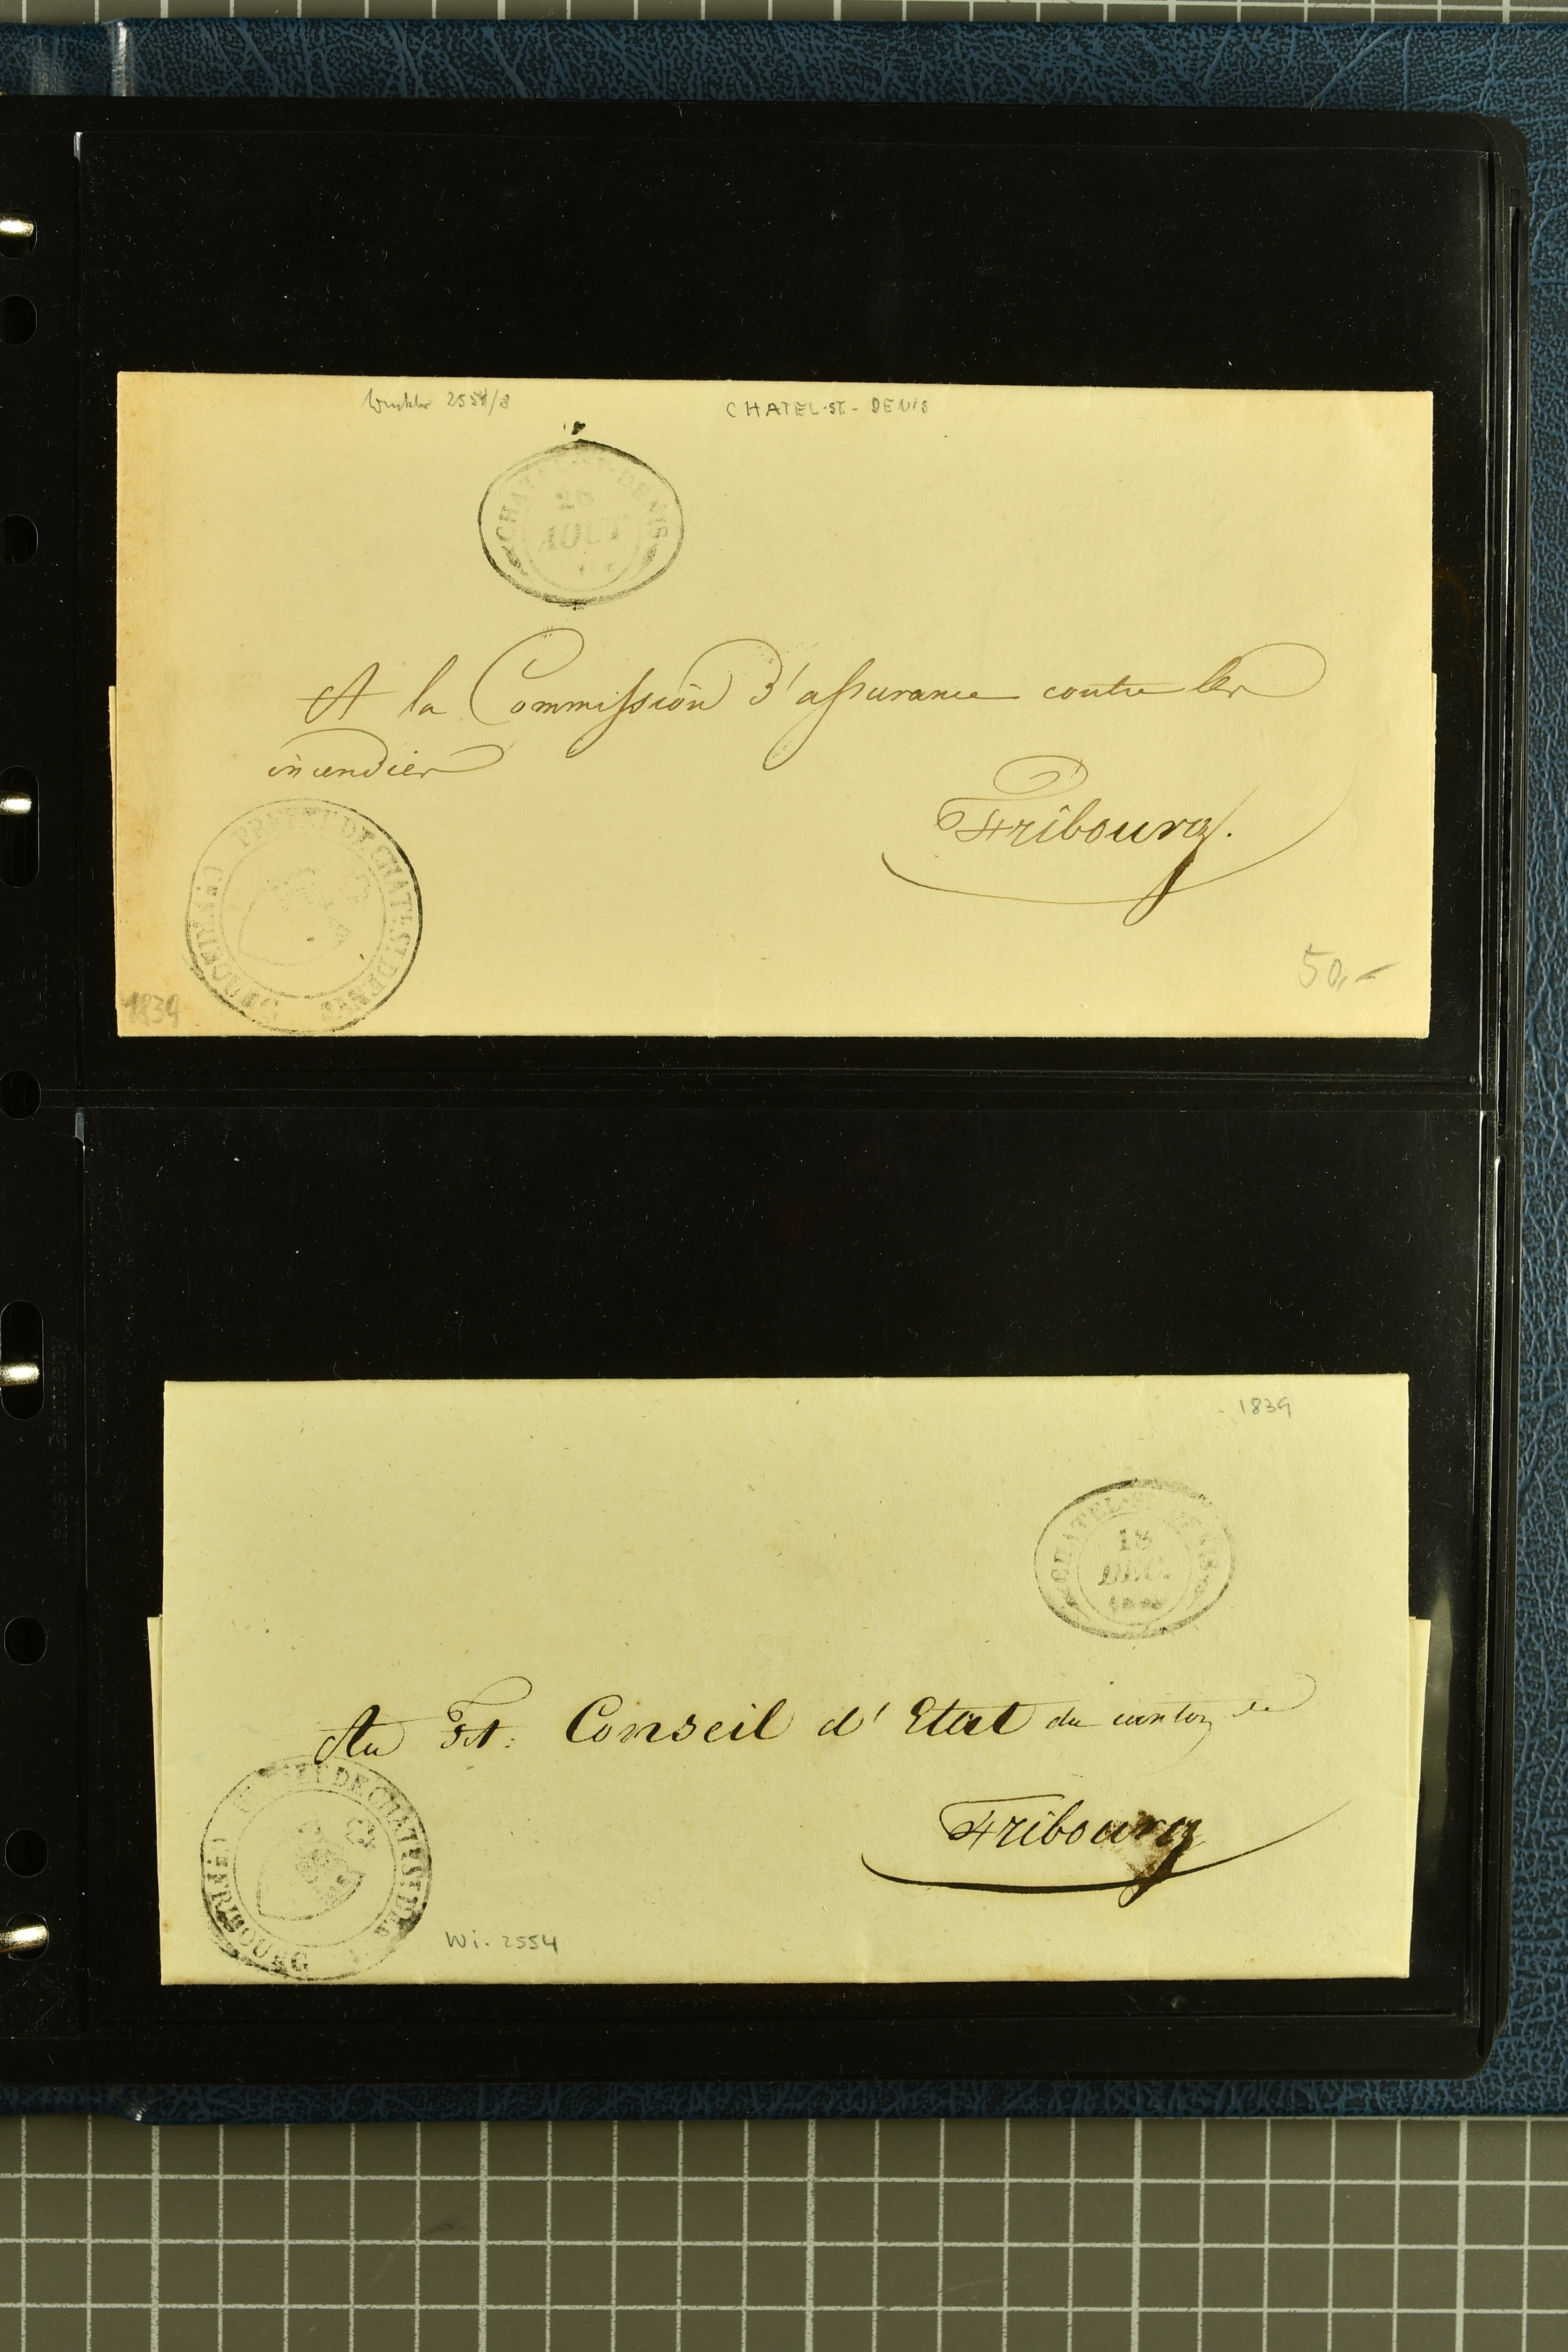 Winkler 2554/8
CHATEL-ST.-DENIS
CHATEL-ST-DENIS
AOUT
A la Commission d'assurance contre les
incendies
Fribourg.
PREFET DE CHATEL ST DENIS
1839
50,-
1839
CHATEL-ST-DENIS
18
DEC.
Au Ht: Conseil d'Etat du canton de
Fribourg
PREFET DE CHATEL ST DENIS
Wi. 2554